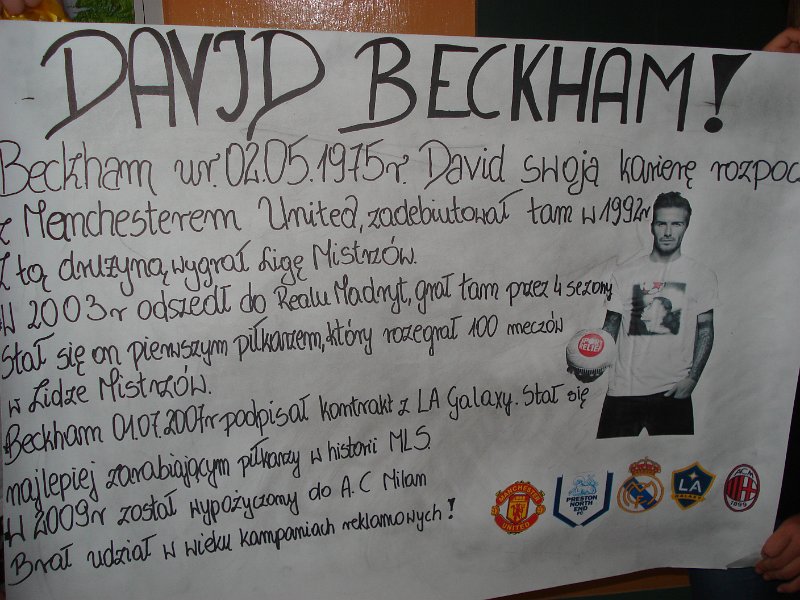 DAVID BECKHAM!
Beckham ur. 02.05.1975r. David swoją karierę rozpoc
z Manchesterem United, zadebiutował tam w 1992r
Z tą drużyną wygrał Ligę Mistrzów.
W 2003r odszedł do Realu Madryt, grał tam przez 4 sezony
Stał się on pierwszym piłkarzem, który rozegrał 100 meczów
w Lidze Mistrzów.
Beckham 01.07.2007r podpisał kontrakt z LA Galaxy. Stał się
najlepiej zarabiającym piłkarzy w historii MLS.
W 2009r został wypożyczony do A.C Milam
Brał udział w wieku kampaniach reklamowych!
SPORT
RELIEF
MANCHESTER
UNITED
PRESTON
NORTH
END
FC
LA
GALAXY
ACM
1899